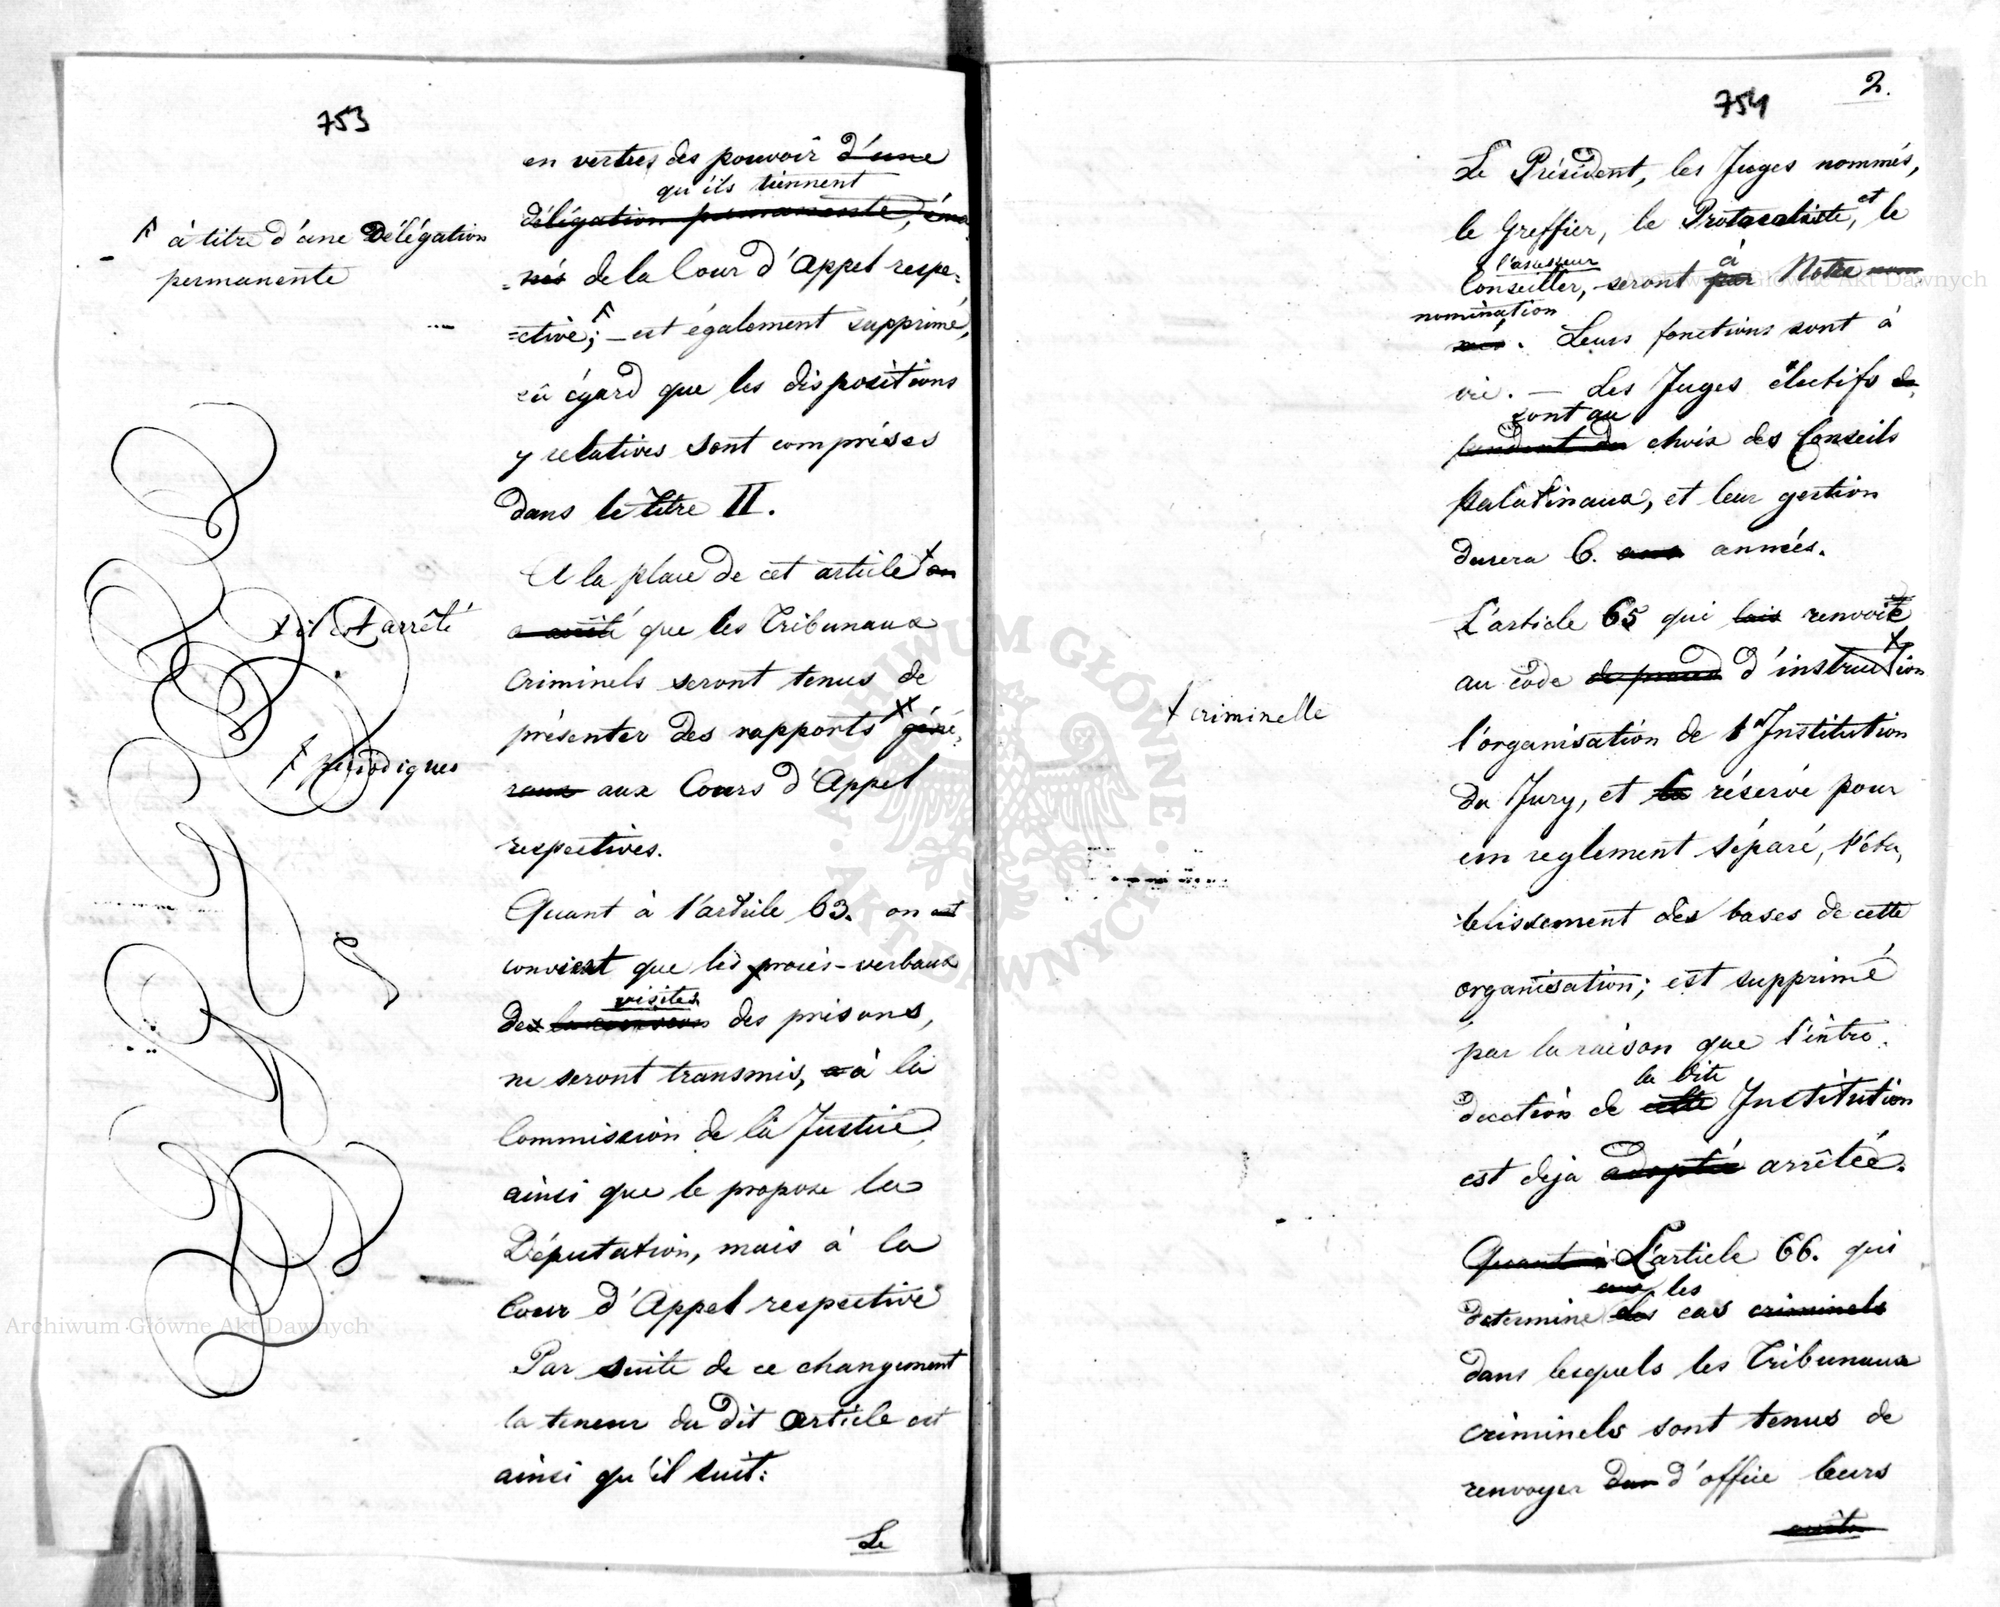 753
en vertus des pouvoir d'une
qu'ils tiennent
délégation permanente, éma-
-née de la Cour d'Appel respe-
=ctive; ^ — est également supprimé,
eû égard que les dispositions
y relatives sont comprises
dans le titre II.
^ à titre d'une Délégation
permanente
A la place de cet article + on
a arrêté que les Tribunaux
criminels seront tenus de
présenter des rapports géné-
raux aux Cours d'Appel
respectives.
+ il est arrêté
+ periodiques
Quant à l'article 63. on est
convient que les procès-verbaux
visites
des des prisons,
ne seront transmis, à la
Commission de la Justice,
ainsi que le propose la
Députation, mais à la
Cour d'Appel respective
Par suite de ce changement
la teneur du dit article est
ainsi qu'il suit:
Le
754
2.
Le Président, les Juges nommés,
le Greffier, le Protocoliste, et le
l'assesseur
Conseiller, seront par à Notre nom
nomination
més. Leurs fonctions sont à
vie. — Les Juges électifs de
sont au
pendent du choix des Conseils
Palatinaux, et leur gestion
durera 6. ans années.
L'article 65 qui renvoie
au code d'instruction
+ criminelle
l'organisation de l'Institution
du Jury, et réservé pour
un reglement séparé, l'éta-
blissement des bases de cette
organisation; est supprimé
par la raison que l'intro-
la dite
duction de cette Institution
est deja adoptée arrêtée.
Quant à L'article 66. qui
les
determine des cas criminels
dans lesquels les Tribunaux
criminels sont tenus de
renvoyer d'office leurs
Archiwum Główne Akt Dawnych
Archiwum Główne Akt Dawnych
ARCHIWUM GŁÓWNE AKT DAWNYCH